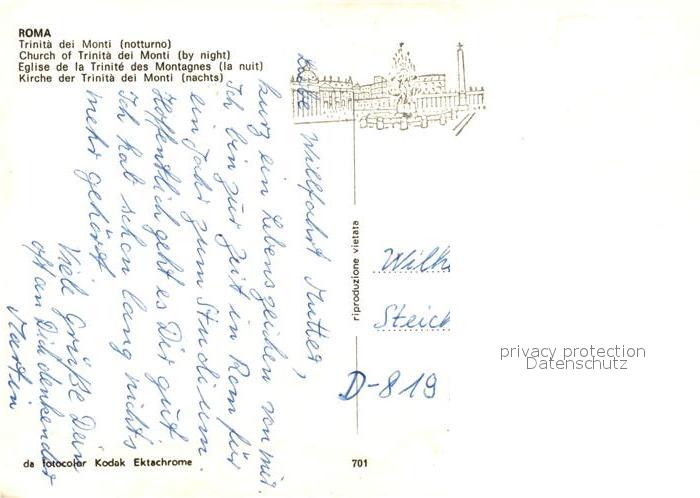 ROMA
Trinità dei Monti (notturno)
Church of Trinità dei Monti (by night)
Eglise de la Trinité des Montagnes (la nuit)
Kirche der Trinità dei Monti (nachts)
Liebe Willfahrt Mutter,
kurz ein Lebenszeichen von mir.
Ich bin zur Zeit in Rom für
ein Jahr zum Studium.
Hoffentlich geht es Dir gut
Ich hab schon lang nichts
mehr gehört
Viele Grüße Dein
oft an Dich denkender
Martin
riproduzione vietata
Wilh
Steich
D-819
privacy protection
Datenschutz
da fotocolor Kodak Ektachrome
701